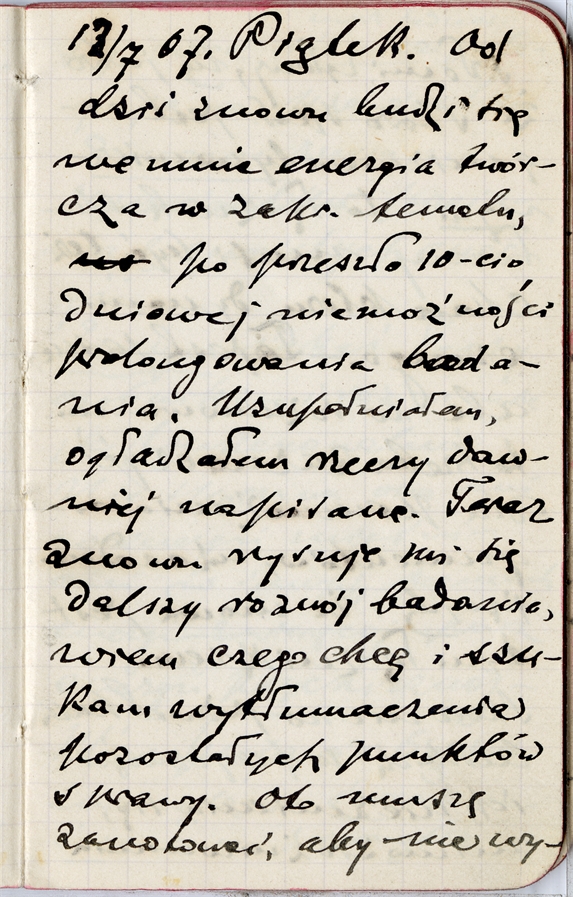 12/7 07. Piątek. Od
dziś znowu budzi się
we mnie energia twór-
cza w zakr. tematu,
po przeszło 10-cio
dniowej niemożności
prolongowania bada-
nia. Uzupełniałem,
ogładzałem rzeczy daw-
niej napisane. Teraz
znowu rysuje mi się
dalszy rozwój badania,
wiem czego chcę i szu-
kam wytłumaczenia
pozostałych punktów
sprawy. Oto muszę
zanotować, aby nie wy-